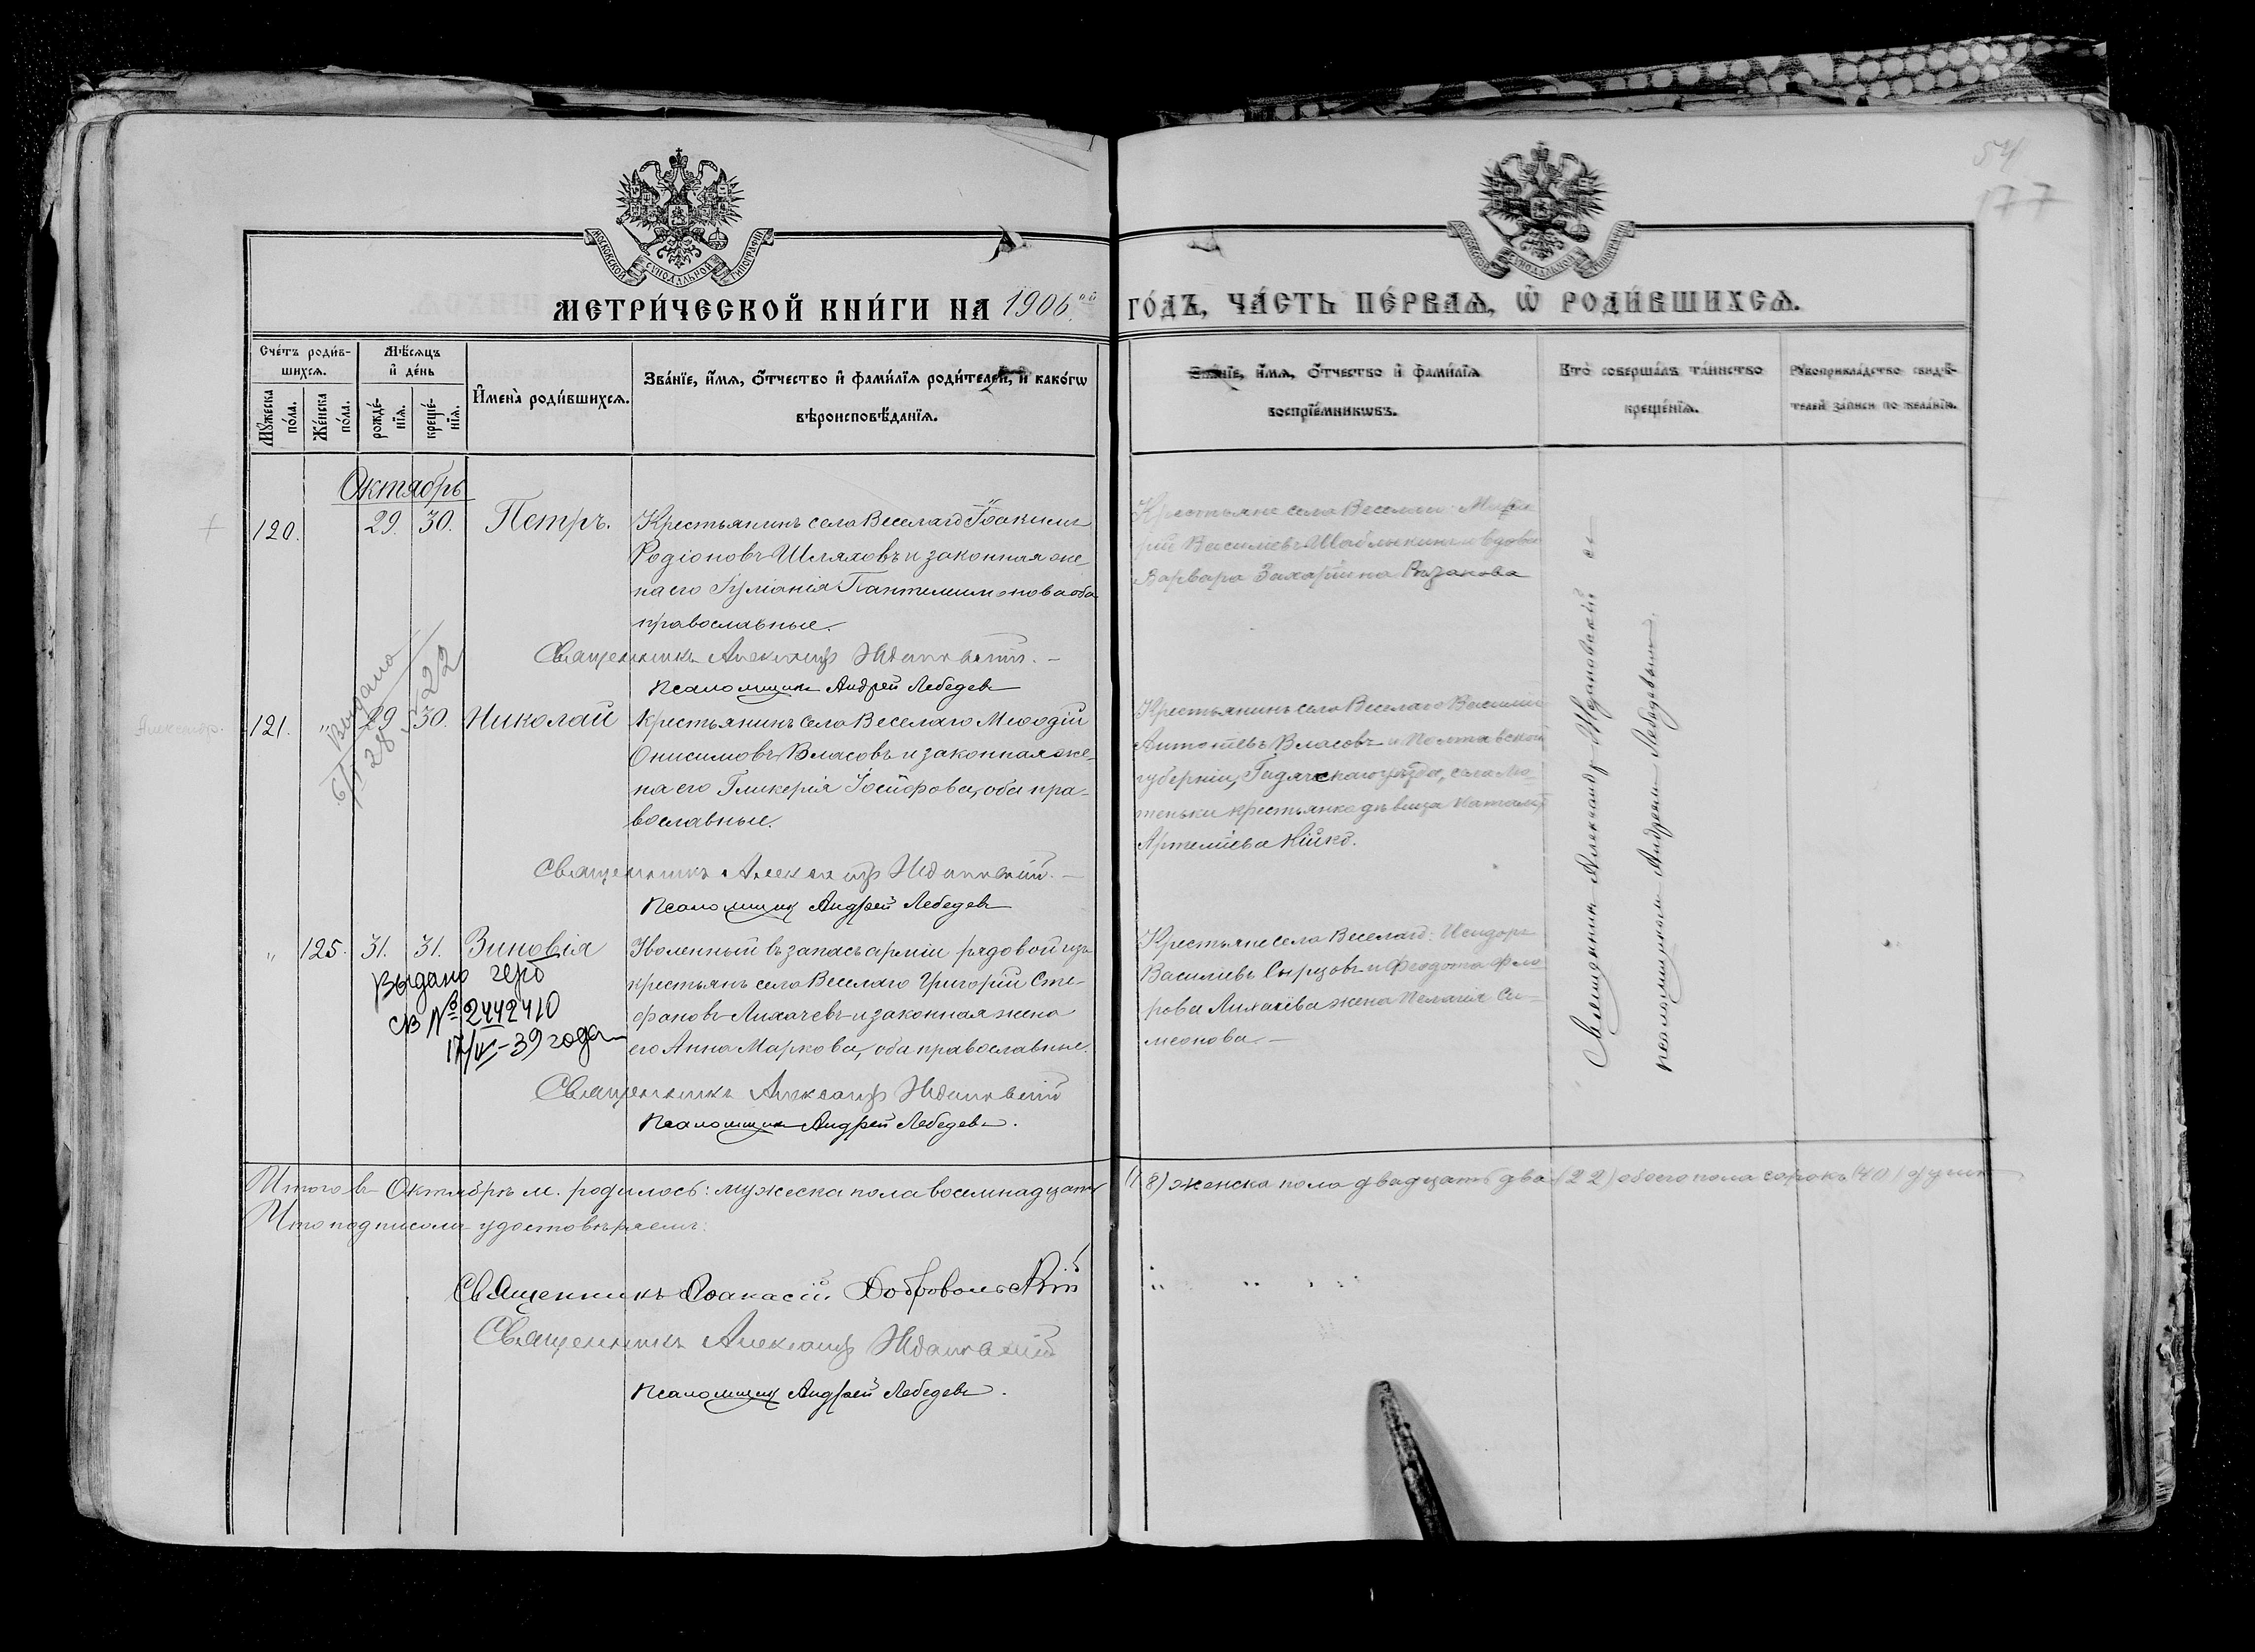 54
177
МОСКОВСКОЙ СУНОДАЛЬНОЙ ТИПОГРАФІИ
МОСКОВСКОЙ СУНОДАЛЬНОЙ ТИПОГРАФІИ
МЕТРИ́ЧЕСКОЙ КНИ́ГИ НА 1906.ой
ГО́ДЪ, ЧА́СТЬ ПЕ́РВАѦ, Ѡ҆ РОДИ́ВШИХСѦ.
Сче́тъ роди́в-
шихсѧ.
Мѣ́сѧцъ
и҆ де́нь
Мꙋ́жеска по́ла.
Же́нска по́ла.
рожде́-нїѧ.
креще́-нїѧ.
И҆мена̀ роди́вшихсѧ.
Зва́нїе, и҆́мѧ, ѻ҆́тчество и҆ фами́лїѧ роди́телей, и҆ како́гѡ
вѣроисповѣ́данїѧ.
Зва́нїе, и҆́мѧ, ѻ҆́тчество и҆ фами́лїѧ
воспрїе́мникѡвъ.
Кто̀ соверша́лъ та́инство
креще́нїѧ.
Рꙋкоприкла́дство свидѣ́-
телей за́писи по жела́нїю.
Октябрь
120. 29. 30. Петръ. Крестьянинъ села Веселаго Іоакимъ
Родіоновъ Шляховъ и законная же
на его Пантелеимонова оба
православные.
Священникъ Александръ Ждановскій. –
Псаломщикъ Андрей Лебедевъ
Крестьяне села Веселаго:
рій Василіевъ Шаблыкинъ и вдова
Варвара Захаріина
Александр.
Выдано
6/I 28 №122
121. " 29 30. Николай Крестьянинъ села Веселаго Меѳодій
Онисимовъ Власовъ и законная же-
на его Гликерія Іосифова, оба пра-
вославные.
Священникъ Александръ Ждановскій. –
Псаломщикъ Андрей Лебедевъ
Крестьянинъ села Веселаго Василій
Антоніевъ Власовъ и Полтавской
губерніи, Гадячскаго уѣзда, села Лю-
теньки крестьянка дѣвица Наталія
Артеміева Кійко.
" 125. 31. 31. Зиновія Уволенный въ запасъ арміи рядовой изъ
крестьянъ села Веселаго Григорій Сте-
фановъ Лихачевъ и законная жена
его Анна Маркова, оба православные.
Выдано
св № 2442410
17/IV – 39 года
Священникъ Александръ Ждановскій
Псаломщикъ Андрей Лебедевъ.
Крестьяне села Веселаго: Исидоръ
Василіевъ Сырцовъ и Ѳедота Фло
рова Лихачева жена Пелагія Си-
меонова. –
Священникъ Александръ Ждановскій съ
псаломщикомъ Андреемъ Лебедевымъ.
Итого въ Октябрѣ м. родилось: мужеска пола восемнадцать (18) женска пола двадцать два (22) обоего пола сорокъ (40) душъ
Что подписомъ удостовѣряемъ:
Священникъ Аѳанасій Добровольскій
Священникъ Александръ Ждановскій
Псаломщикъ Андрей Лебедевъ.